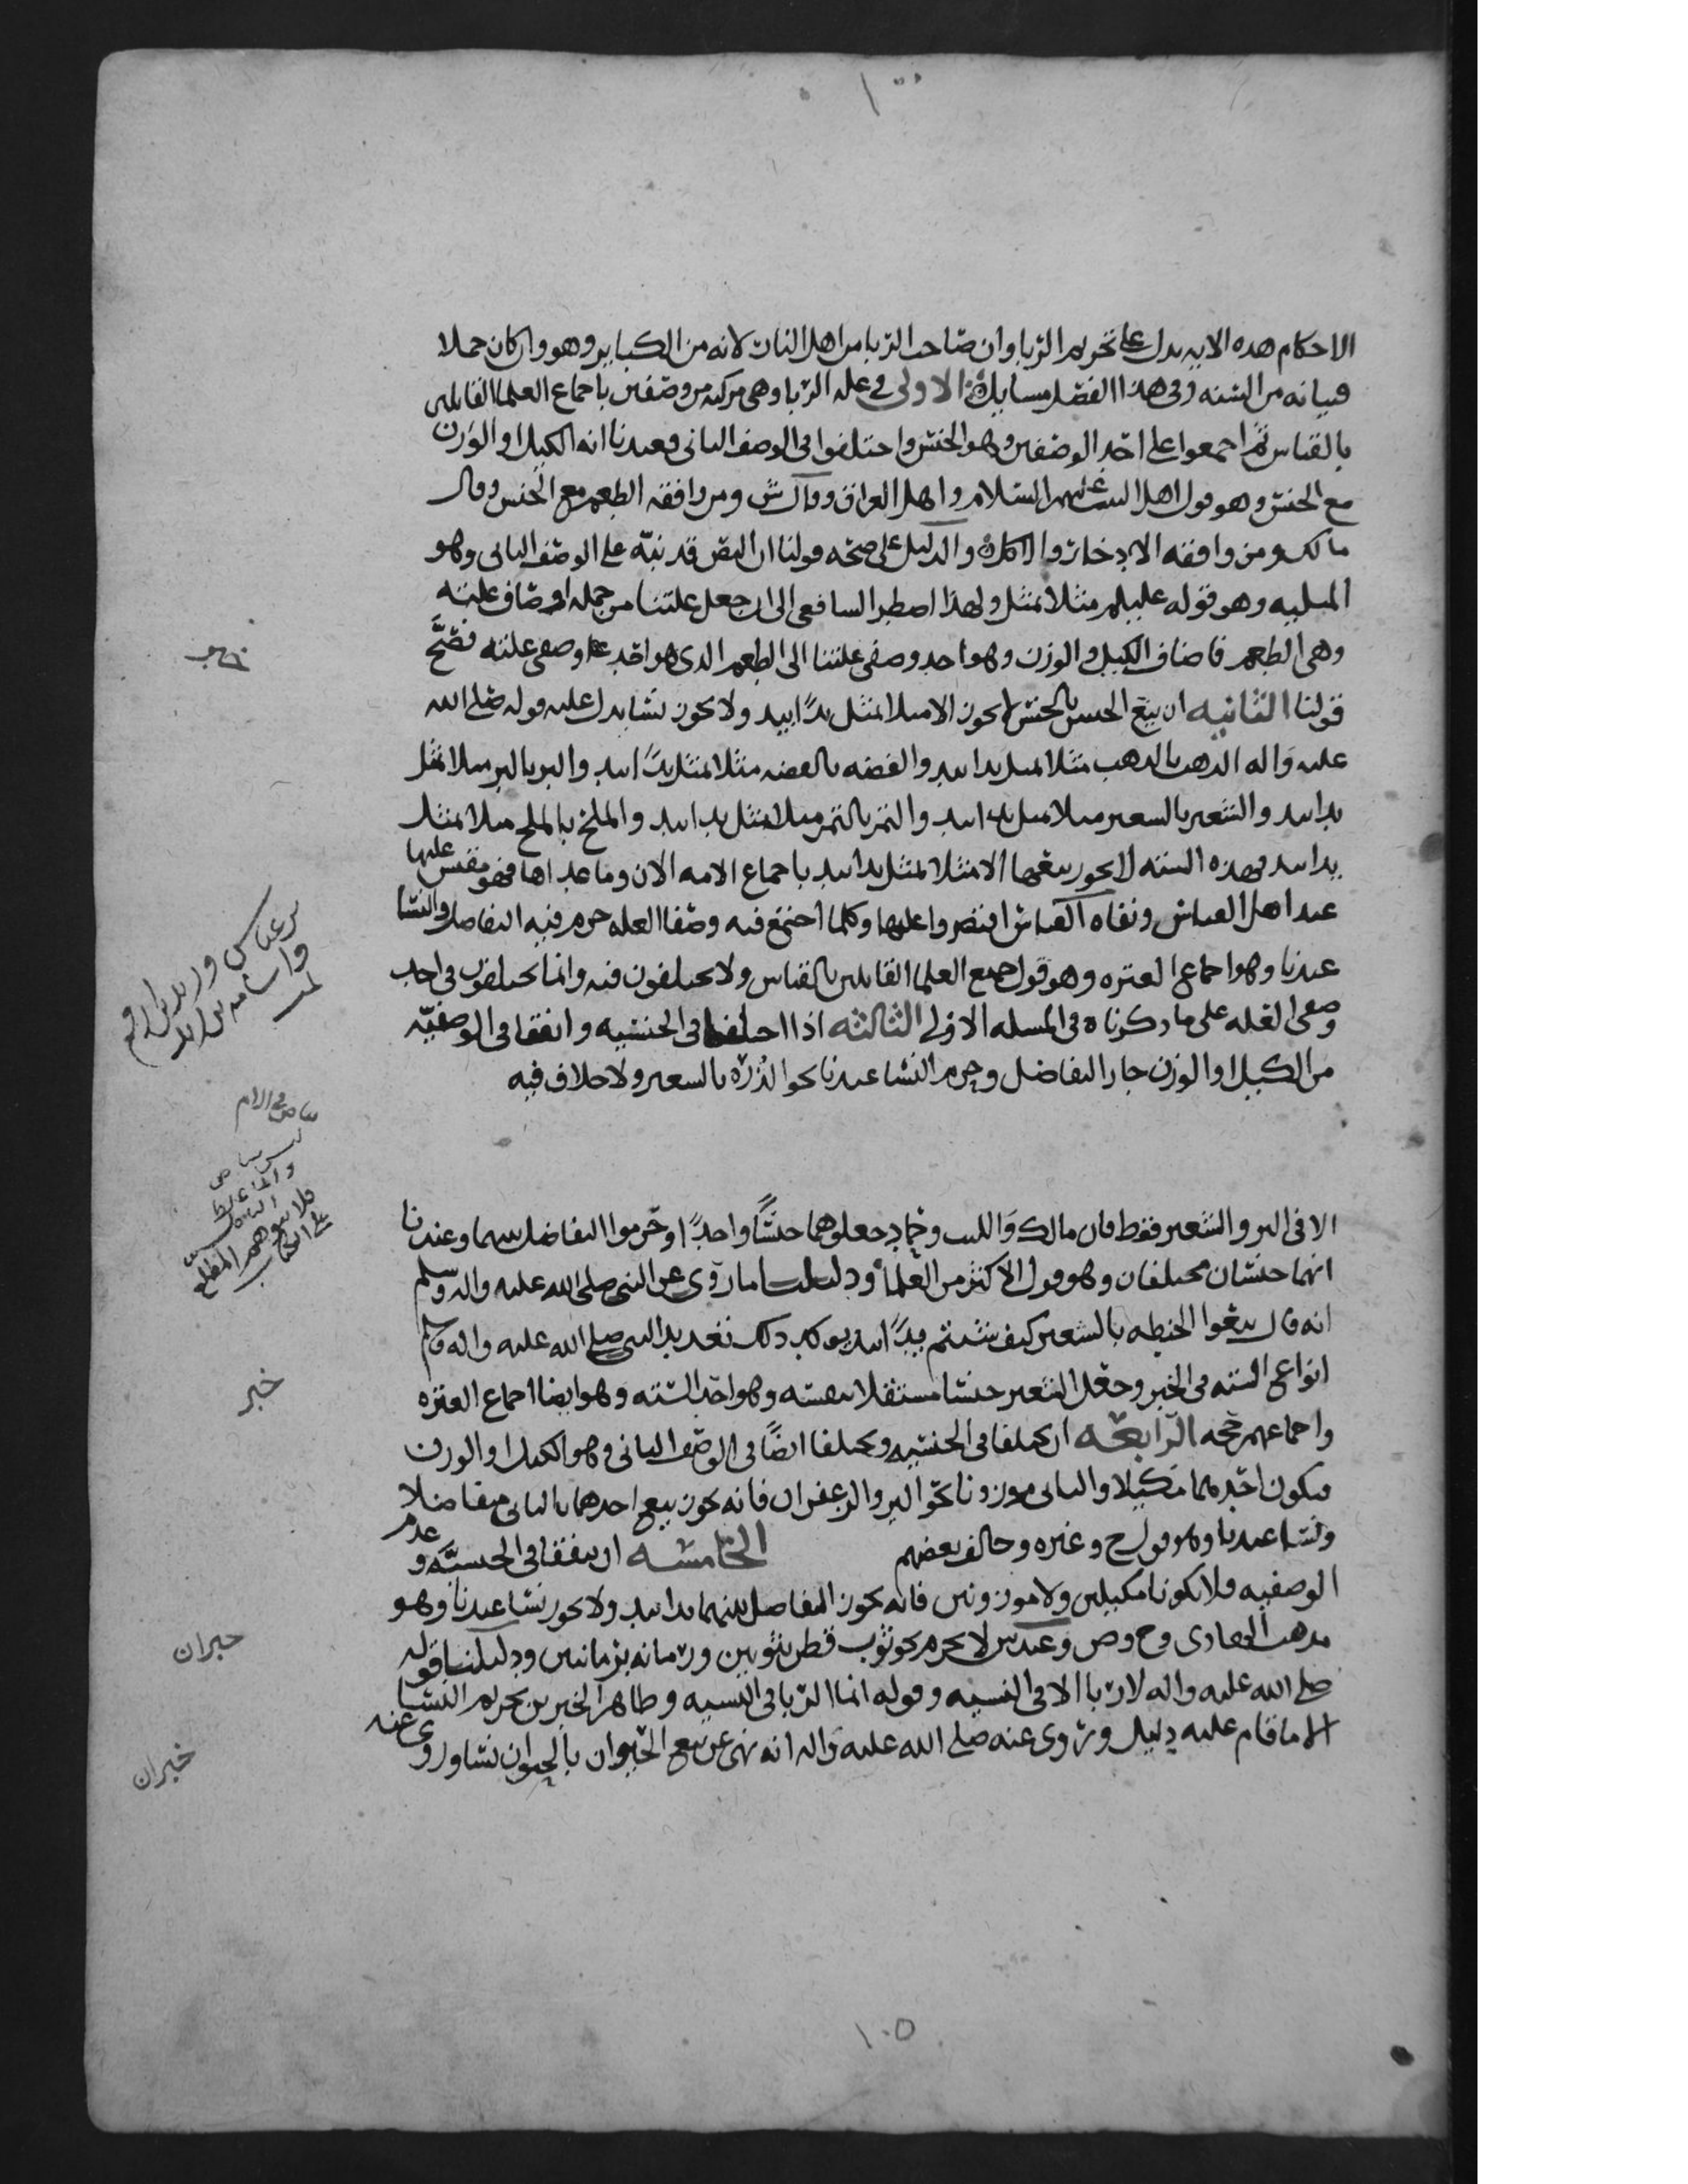 ١٠٠
الاحكام هذه الايه يدل على تحريم الربا وان صاحب الربا من اهل النار لانه من الكبائر وهو وان كان مجملا
فبيانه من السنه وفى هذا الفصل مسايل الاولى فى عله الربا وهى مركبه من وصفين باجماع العلما القايلين
بالقياس ثم اجمعوا على احد الوصفين وهو الجنس واختلفوا فى الوصف الثانى فعندنا انه الكيل او الوزن
مع الجنس وهو قول اهل البيت عليهم السلام واهل العراق وقال ش ومن وافقه الطعم مع الجنس وقال
مالك ومن وافقه الادخار والاكل والدليل على صحه قولنا ان النص قد نبه على الوصف الثانى وهو
المثليه وهو قوله عليلم مثلا بمثل ولهذا اضطر الشافعى الى ان جعل علتنا من جمله اوصاف علته
وهى الطعم فاضاف الكيل والوزن وهو احد وصفى علتنا الى الطعم الذى هو احد وصفى علته فصح
قولنا الثانيه ان بيع الجنس بالجنس لا يجوز الا مثلا بمثل يدا بيد ولا يجوز نسا يدل عليه قوله صلى الله
عليه واله الذهب بالذهب مثلا بمثل يدا بيد والفضه بالفضه مثلا بمثل يدا بيد والبر بالبر مثلا بمثل
يدا بيد والشعير بالشعير مثلا بمثل يدا بيد والتمر بالتمر مثلا بمثل يدا بيد والملح بالملح مثلا بمثل
يدا بيد فهذه السته لا يجوز بيعها الا مثلا بمثل يدا بيد باجماع الامه الان وما عداها فهو مقيس عليها
عند اهل القياس ونفاه القياس اقتصروا عليها وكلما اجتمع فيه وصفا العله حرم فيه التفاضل والنسا
عندنا وهو اجماع العتره وهو قول جميع العلما القايلين بالقياس ولا يختلفون فيه وانما يختلفون فى احد
وصفى العله على ما ذكرناه فى المسله الاولى الثالثه اذا اختلفا فى الجنسيه واتفقا فى الوصفيه
من الكيل او الوزن جاز التفاضل وحرم النسا عندنا نحو الذره بالشعير ولا خلاف فيه
الا فى البر والشعير فقط فان مالك والليث وحماد جعلوهما جنسا واحدا وحرموا التفاضل بينهما وعندنا
انهما جنسان مختلفان وهو قول الاكثر من العلما ودليلنا ما روى عن النبى صلى الله عليه واله وسلم
انه قال بيعوا الحنطه بالشعير كيف شيتم يدا بيد يوكد ذلك تعديد النبى صلى الله عليه واله وسلم
انواع السته فى الخبر وجعل الشعير جنسا مستقلا بنفسه وهو احد السته وهو ايضا اجماع العتره
واجماعهم حجه الرابعه ان يختلفا فى الجنسيه ويختلفا ايضا فى الوصف الثانى وهو الكيل او الوزن
فيكون احدهما مكيلا والثانى موزونا نحو البر والزعفران فانه يجوز بيع احدهما بالثانى متفاضلا
ونسا عندنا وهو قول ح وغيره وخالف بعضهم الخامسه ان يتفقا فى الجنسيه وعدم
الوصفيه فلا يكونا مكيلين ولا موزونين فانه يجوز التفاضل بينهما يدا بيد ولا يجوز نسا عندنا وهو
مذهب الهادى وح وص وعند ش لا يحرم نحو ثوب قطن بثوبين ورمانه برمانتين ودليلنا قوله
صلى الله عليه واله لا ربا الا فى النسيه وقوله انما الربا فى النسيه وظاهر الخبرين تحريم النسا
الا ما قام عليه دليل وروى عنه صلى الله عليه واله انه نهى عن بيع الحيوان بالحيوان نسا وروى عنه
بن عباس وزيد بن ارقم
واسامه بن زيد
بياض فى الام
ليس بياض
فلا يتوهم المطلع
خبر
خبران
خبران
١٠٥